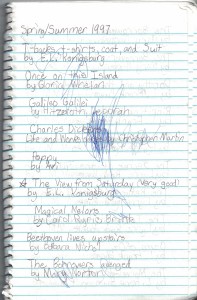 Spring/Summer 1997
T-backs, t-shirts, coat, and Suit
by E.L. Konigsburg
Once on this Island
by Gloria Whelan
Galileo Galilei
by
Charles Dickens
Life and Works by Martin
Poppy
by Avi
☆ The View from Saturday (Very good!
by E.L. Konigsburg
Magical Melons
by Carol Ryrie Brink
Beethoven lives upstairs
by Barbara Nichol
The Borrowers avenged
by Mary Norton